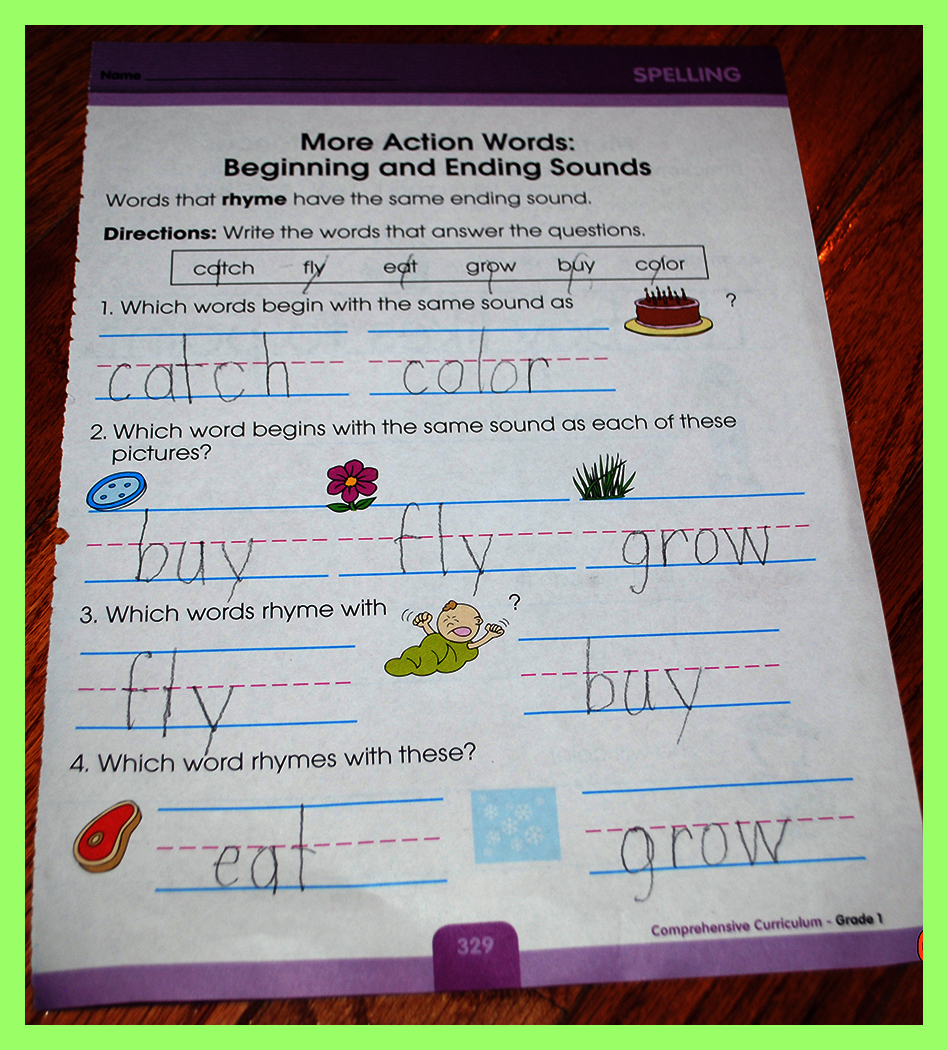 Name
SPELLING
More Action Words:
Beginning and Ending Sounds
Words that rhyme have the same ending sound.
Directions: Write the words that answer the questions.
catch fly eat grow buy color
1. Which words begin with the same sound as ?
catch color
2. Which word begins with the same sound as each of these
pictures?
buy fly grow
3. Which words rhyme with ?
fly buy
4. Which word rhymes with these?
eat grow
Comprehensive Curriculum - Grade 1
329